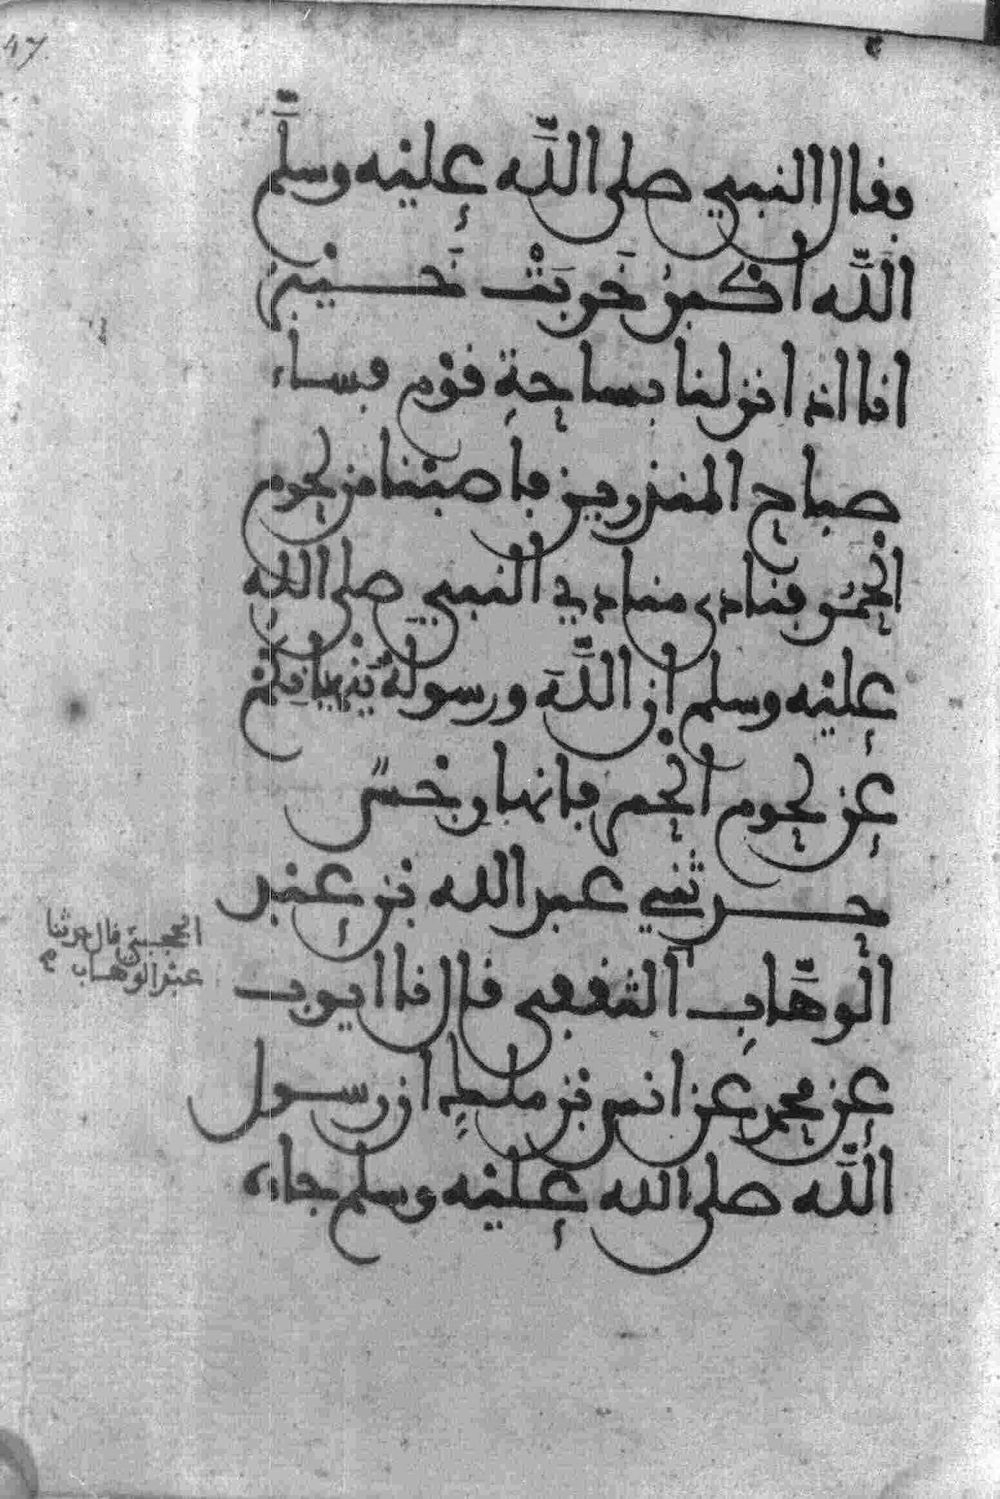 47
فقال النبي صلى الله عليه وسلم
الله اكبر خربت خيبر
انا اذا نزلنا بساحة قوم فساء
صباح المنذرين فاصبنا من لحوم
الحمر فنادى منادي النبي صلى الله
عليه وسلم ان الله ورسوله ينهيانكم
عن لحوم الحمر فانها رجس
حدثني عبد الله بن عبد
الوهاب الثقفي قال نا ايوب
عن محمد عن انس بن ملك ان رسول
الله صلى الله عليه وسلم جاءه
الحجبي قال حدثنا
عبد الوهاب